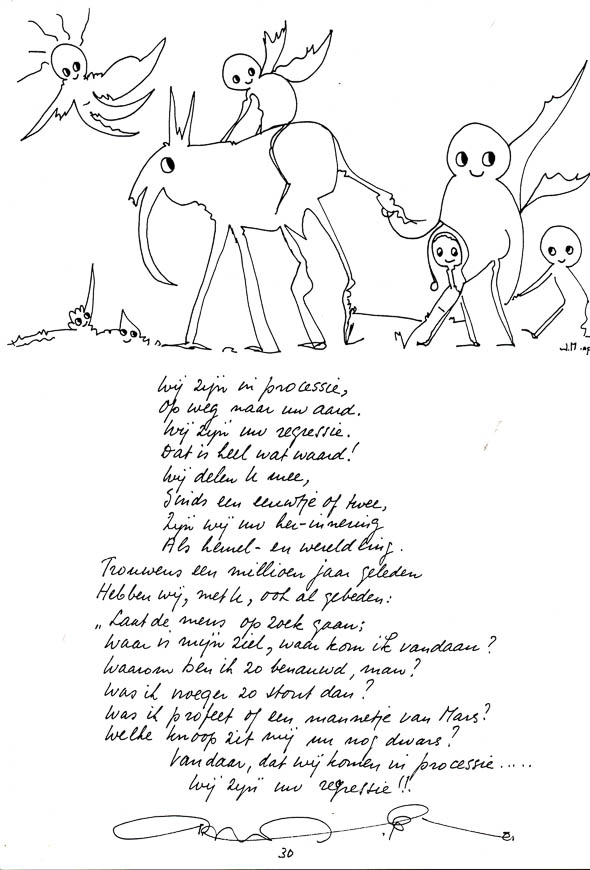 J.M. -op
Wij zijn in processie,
Op weg naar uw aard.
Wij zijn uw regressie.
Dat is heel wat waard!
Wij delen U mee,
Sinds een eeuwtje of twee,
Zijn wij uw her-innering
Als hemel- en wereldling.
Trouwens een millioen jaar geleden
Hebben wij, met U, ook al gebeden:
„Laat de mens op zoek gaan;
Waar is mijn ziel, waar kom ik vandaan?
Waarom ben ik zo benauwd, man?
Was ik vroeger zo stout dan?
Was ik profeet of een mannetje van Mars?
Welke knoop zit mij nu nog dwars?
Vandaar, dat wij komen in processie.....
Wij zijn uw regressie!!
30